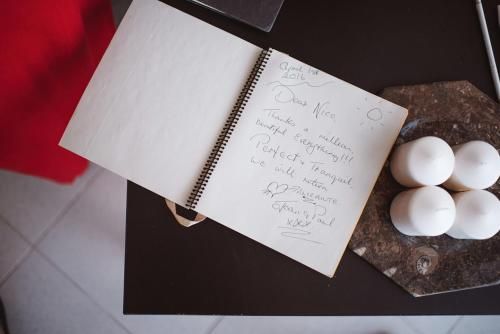 April 1st
2016
Dear Nico,
Thanks a million,
beautiful everything!!!
Perfect & Tranquil.
We will return
& Paul
xxx